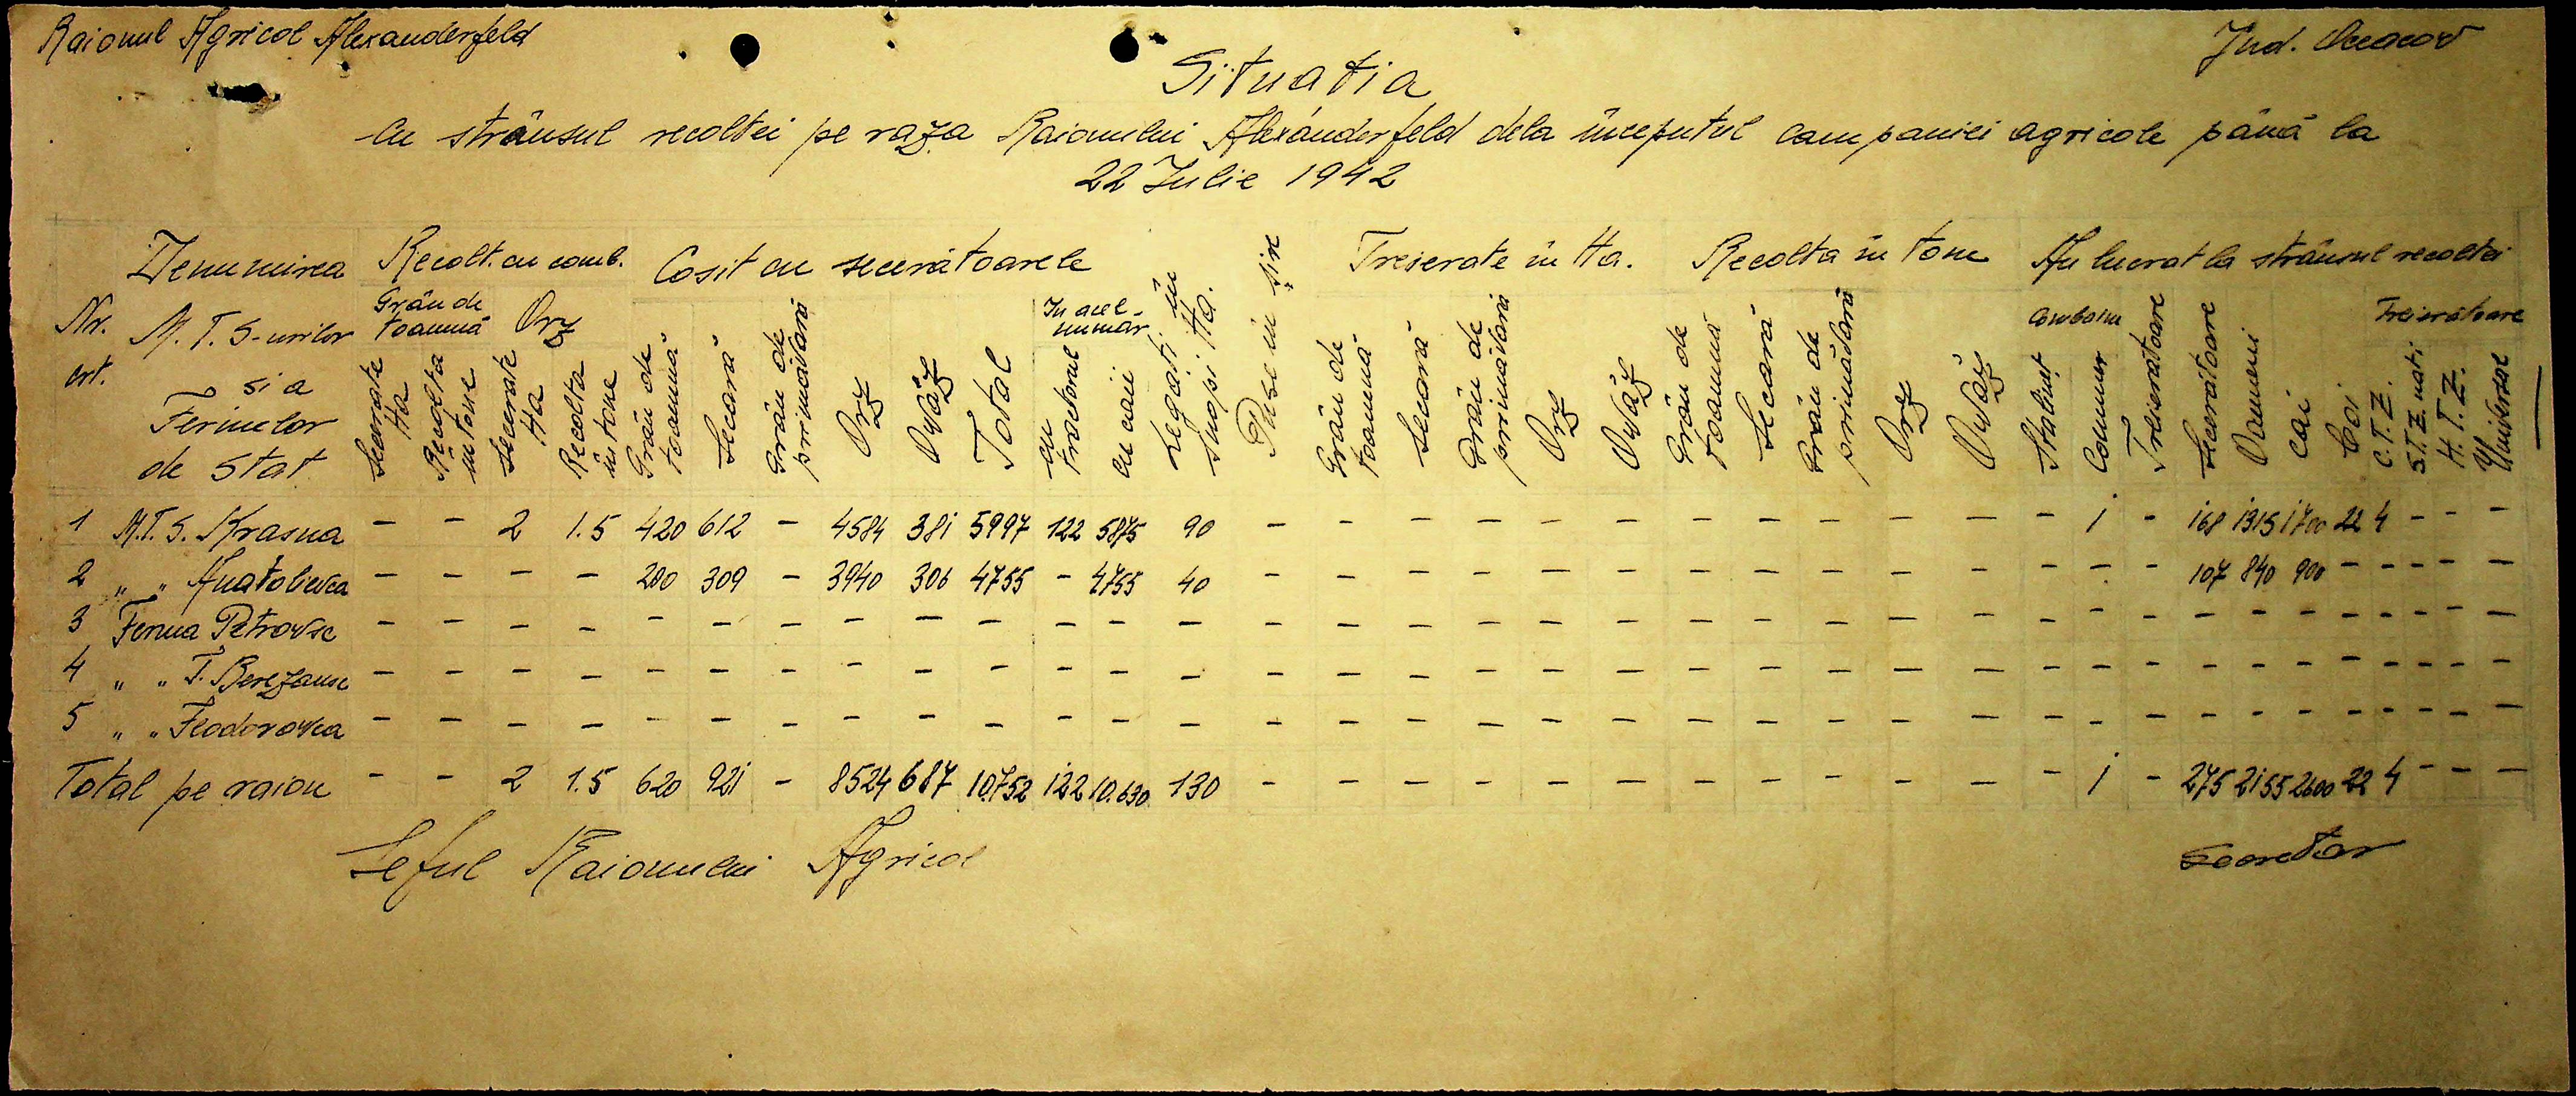 Raionul Agricol Alexanderfeld
Jud. Oceacov
Situatia
Cu strânsul recoltei pe raza Raionului Alexanderfeld dela începutul campaniei agricole până la
22 Iulie 1942
Nr. crt.
Denumirea M.T.S-urilor si a Fermelor de Stat
Recolt. cu comb.
Grâu de toamnă
Secerate Ha
Recolta in tone
Orz
Secerate Ha
Recolta în tone
Cosit cu secerătoarele
Grâu de toamnă
Secară
Grâu de primăvară
Orz
Ovăz
Total
In acel numar
cu tractorul
cu caii
Legați în snopi Ha.
Puse in șire
Treierate în Ha.
Grâu de toamnă
Secară
Grâu de primăvară
Orz
Ovăz
Recolta în tone
Grâu de toamnă
Secară
Grâu de primăvară
Orz
Ovăz
Au lucrat la strânsul recoltei
Combaine
Stalinist
Communar
Treierătoare
Secerătoare
Oameni
Cai
Boi
Treierătoare
C.T.Z.
S.T.Z. nati
H.T.Z.
Universal
1 M.T.S. Krasna - - 2 1.5 420 612 - 4584 381 5997 122 5875 90 - - - - - - - - - - - - 1 - 168 1315 1700 22 4 - - -
2 „ „ Anatolievca - - - - 200 309 - 3940 306 4755 - 4755 40 - - - - - - - - - - - - - - 107 840 900 - - - - -
3 Ferma Petrovsc - - - - - - - - - - - - - - - - - - - - - - - - - - - - - - - - - - -
4 „ „ T. Berezansc - - - - - - - - - - - - - - - - - - - - - - - - - - - - - - - - - - -
5 „ „ Feodorovca - - - - - - - - - - - - - - - - - - - - - - - - - - - - - - - - - - -
Total pe raion - - 2 1.5 620 921 - 8524 687 10.752 122 10.630 130 - - - - - - - - - - - - 1 - 275 2155 2600 22 4 - - -
Seful Raionului Agricol
Secretar